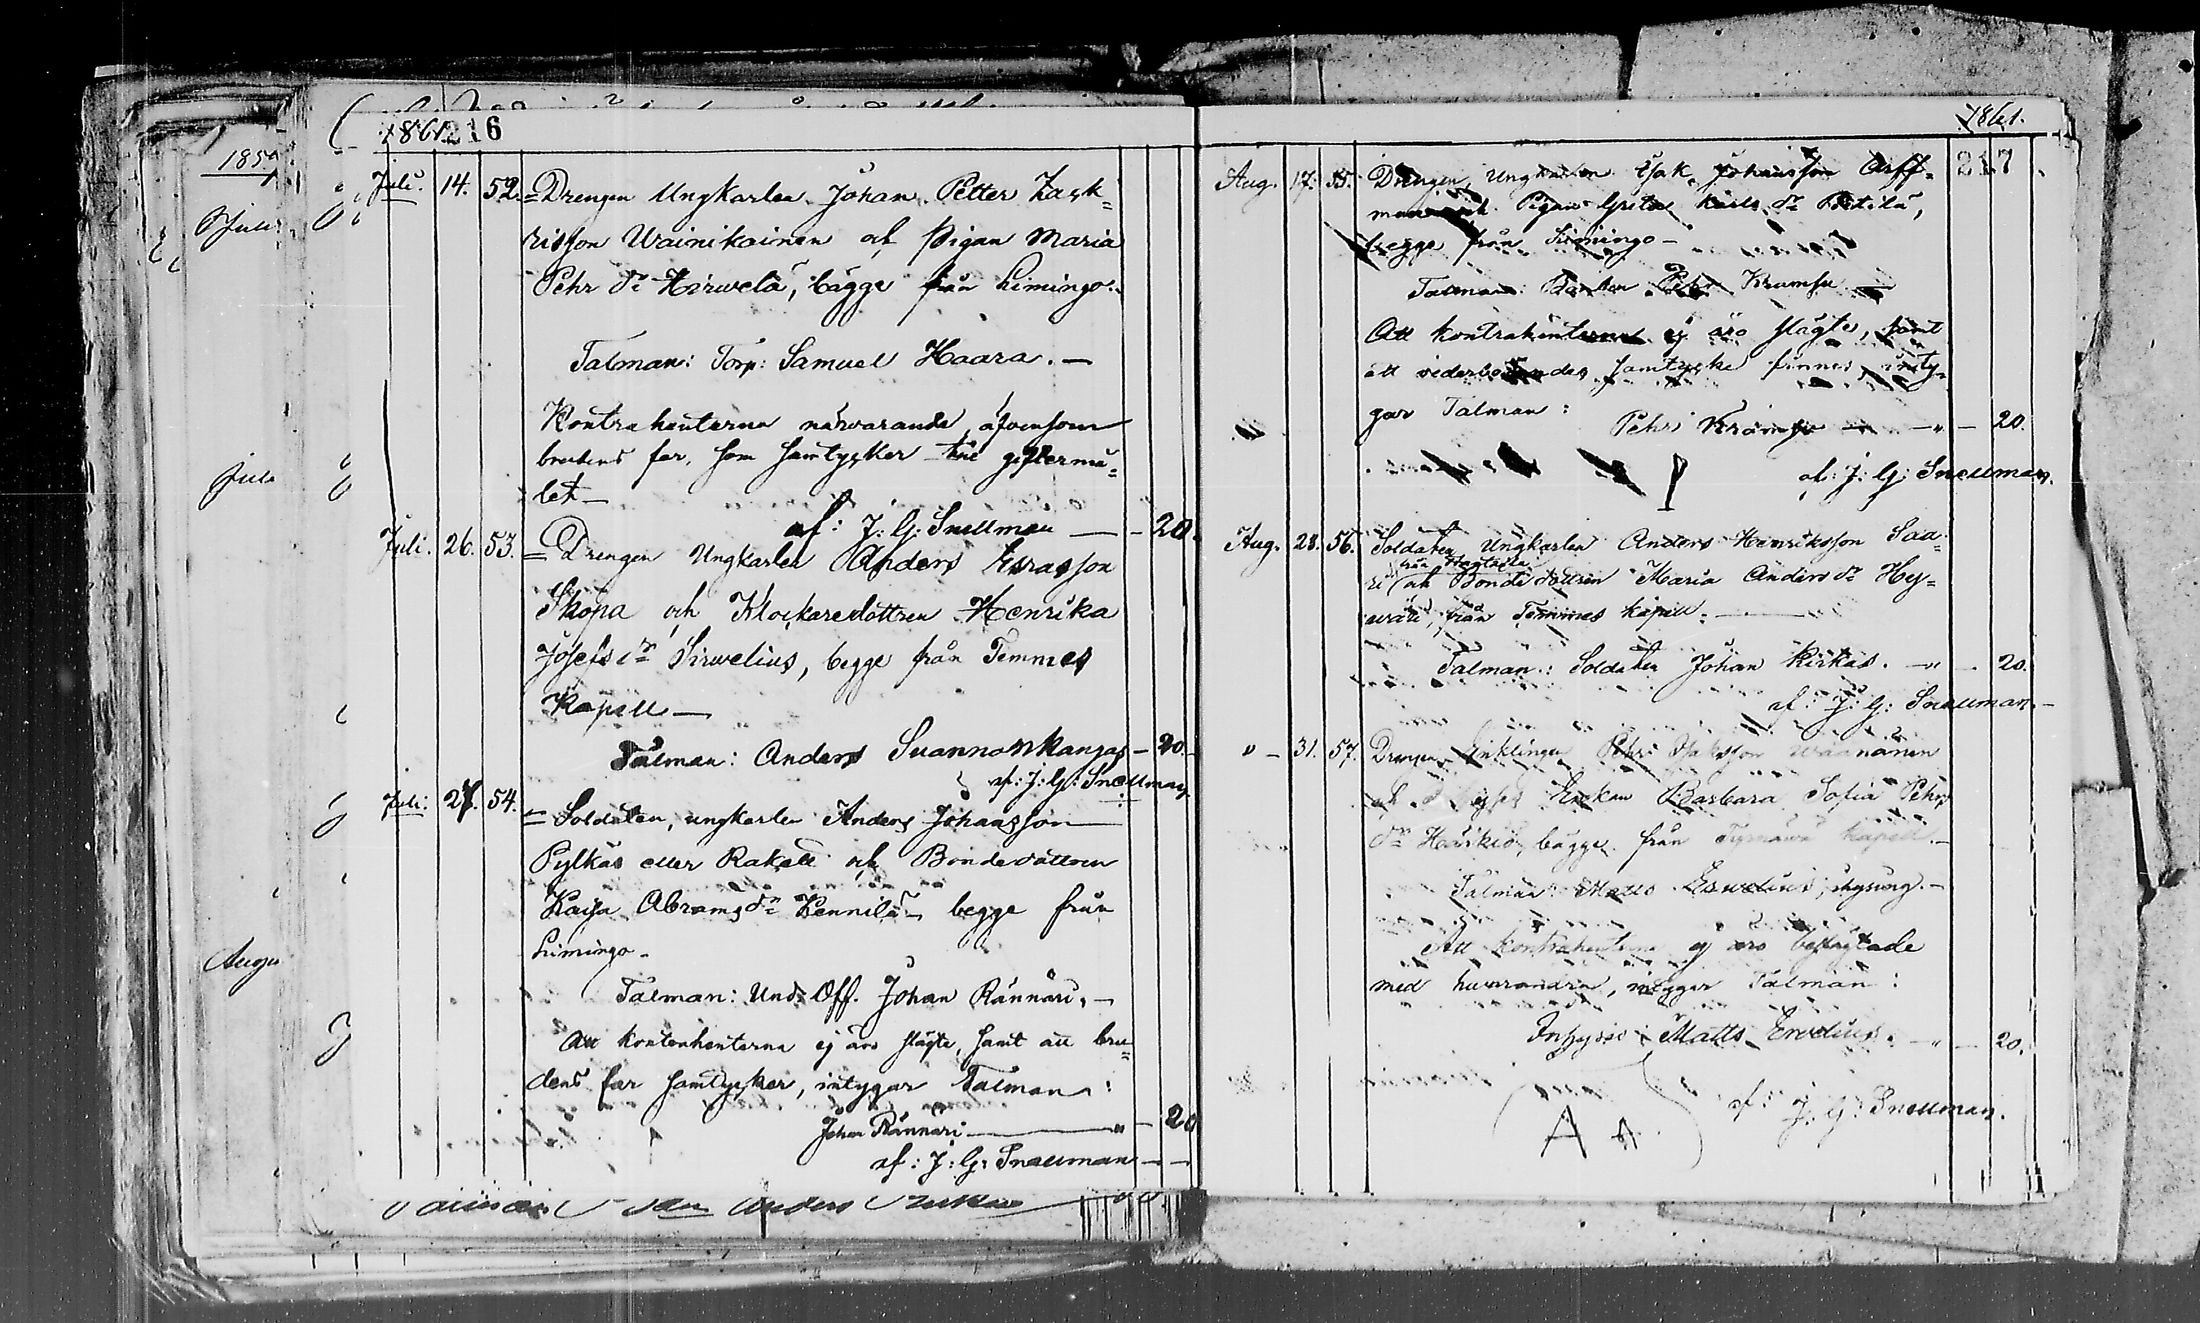 1861. 216
1859
Juli. 14. 52. = Drengen Ungkarlen Johan Petter Zack=
risson Wainikainen och Pigan Maria
Pehr dr Hirwelä, bägge från Limingo.
Talman: Torp: Samuel Haara. —
Kontrahenterna närvarande, äfvensom
brudens far, som samtycker till giftermå=
let —
af: J: G: Snellman — - 20.
Juli. 26. 53. = Drengen Ungkarlen Anders Esrasson
Skopa och Klockaredottren Henrika
Josefs dr Sirwelius, begge från Temmes
Kapell —
Talman: Anders Suannonkangas - 20. -
af: J: G: Snellman
Juli. 27. 54. = Soldaten, ungkarlen Anders Johansson
Pylkäs eller Rakett och Bondedottren
Kaisa Abrams dr Hennilä, begge från
Limingo -
Talman: Und: Off. Johan Rännäri. —
Att kontrahenterna ej äro slägte, samt att bru=
dens far samtycker, intygar Talman:
Johan Rännäri — " - 20
af: J: G: Snellman — —
Juli
Augu
Anders
1861.
217
Aug. 17. 55. Drengen, Ungkarlen Isak Johansson Orff=
man och Pigan Greta Karls dr Pietilä,
begge från Limingo —
Talman: Pehr Krampu —
Att kontrahenterna ej äro slägte, samt
att vederbörandes samtycke finnes, inty=
gar Talman:
Pehr Krampu — " - 20.
af: J: G: Snellman.
Aug. 28. 56. Soldaten Ungkarlen Anders Henriksson Saa=
ri och Bondedottren Maria Anders dr Hy=
från Temmes kapell. —
Talman: Soldaten Johan Kirkas. — " - 20.
af: J: G: Snellman. —
" - 31. 57. Drengen Enklingen Pehr Isaksson Wäänänen
och Enkan Barbara Sofia Pehrs
dr Haurkio, bägge från Tyrnäwä kapell. —
Talman: Matts Erwelius, —
Att kontrahenterna ej äro beslägtade
med hvarandra, intygar Talman:
Inhyses: Matts Erwelius. — " - 20.
af: J: G: Snellman.